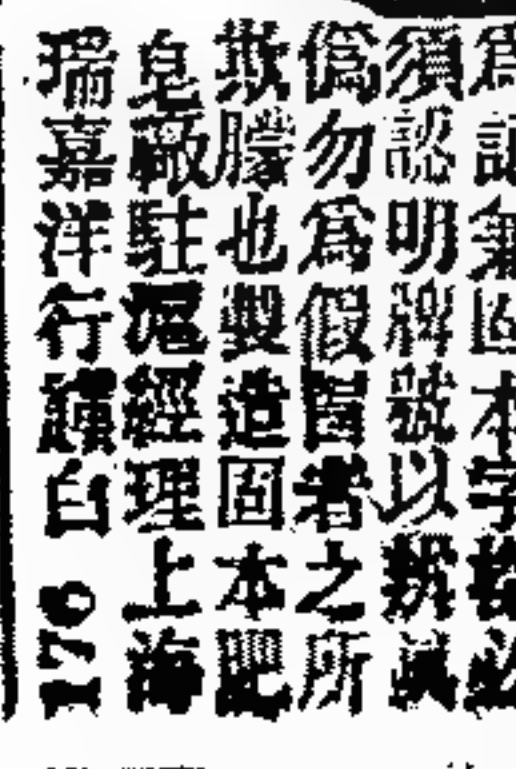 爲記兼固本字
須認明牌號以辨眞
僞勿爲假冒者之所
欺朦也製造固本肥
皂廠駐滬經理上海
瑞嘉洋行謹白
176